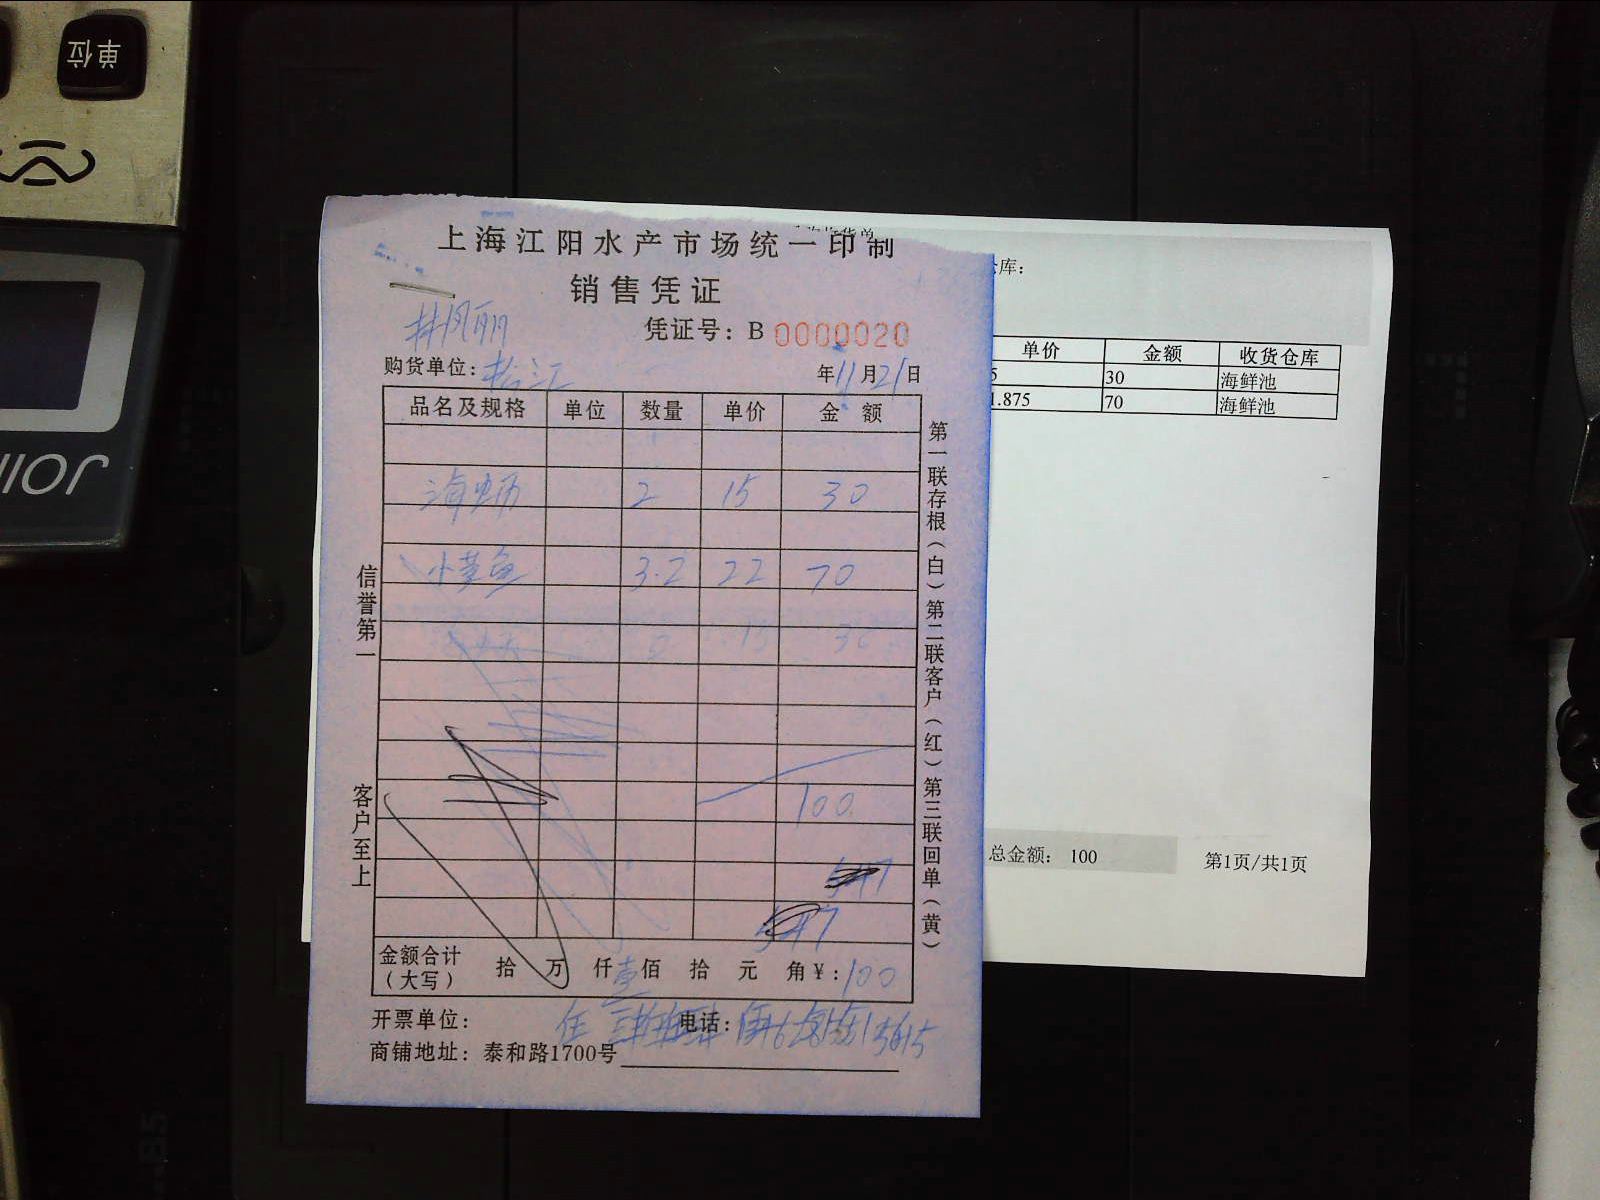 单位
上海江阳水产市场统一印制
销售凭证
凭证号：B 0000020
购货单位：松江
年11月21日
品名及规格 单位 数量 单价 金额
海蛎 2 15 30
小黄鱼 3.2 22 70
15 30
100
547
547
金额合计（大写） 拾 万 仟 壹 佰 拾 元 角 ¥：100
开票单位： 电话：
商铺地址：泰和路1700号
信誉第一
客户至上
第一联存根（白）第二联客户（红）第三联回单（黄）
仓库：
单价 金额 收货仓库
5 30 海鲜池
1.875 70 海鲜池
总金额： 100
第1页/共1页